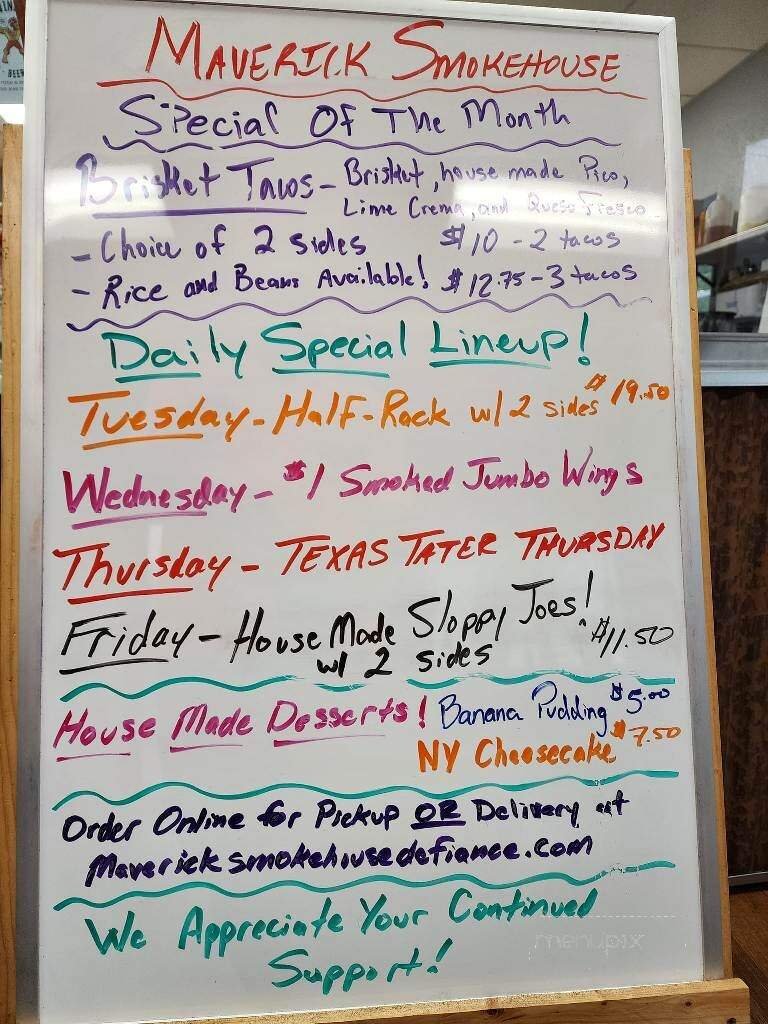 MAVERICK SMOKEHOUSE
Special Of The Month
Brisket Tacos - Brisket, house made Pico,
Lime Crema, and Queso Fresco
- Choice of 2 sides $10 - 2 tacos
- Rice and Beans Available! $12.75 - 3 tacos
Daily Special Lineup!
Tuesday - Half-Rack w/ 2 sides $19.50
Wednesday - $1 Smoked Jumbo Wings
Thursday - TEXAS TATER THURSDAY
Friday - House Made Sloppy Joes!
w/ 2 sides $11.50
House Made Desserts! Banana Pudding $5.00
NY Cheesecake $7.50
Order Online for Pickup OR Delivery at
Mavericksmokehousedefiance.com
We Appreciate Your Continued
Support!
menupix
BEER